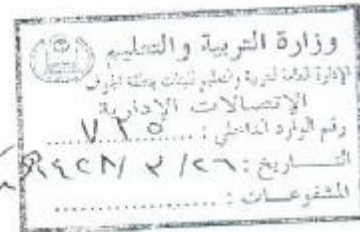 وزارة التربية والتعليم
الإدارة العامة للتربية والتعليم للبنات بمنطقة الجوف
الإتصالات الإدارية
رقم الوارد الداخلي : ٧٣٥
التاريخ : ٢٦ / ٣ / ١٤٢٨
المشفوعات :